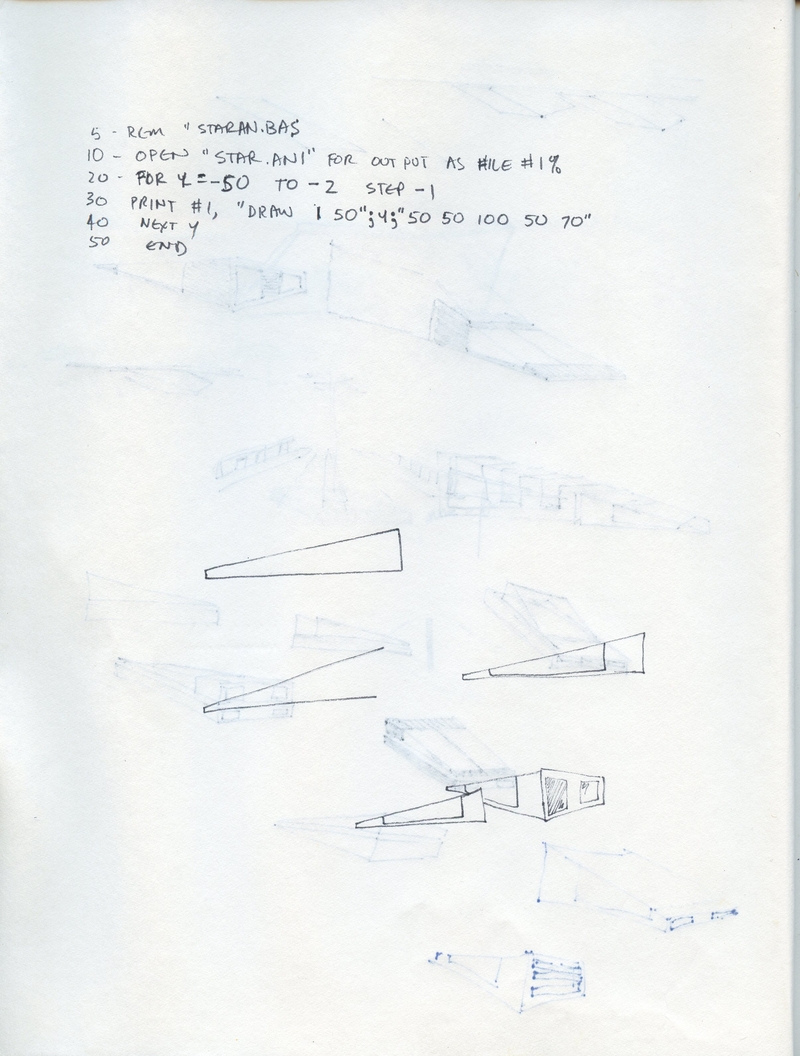 5 - REM "STARAN.BAS
10 - OPEN "STAR.ANI" FOR OUTPUT AS FILE #1%
20 - FOR Y=-50 TO -2 STEP -1
30 PRINT #1, "DRAW 1 50";Y;"50 50 100 50 70"
40 NEXT Y
50 END